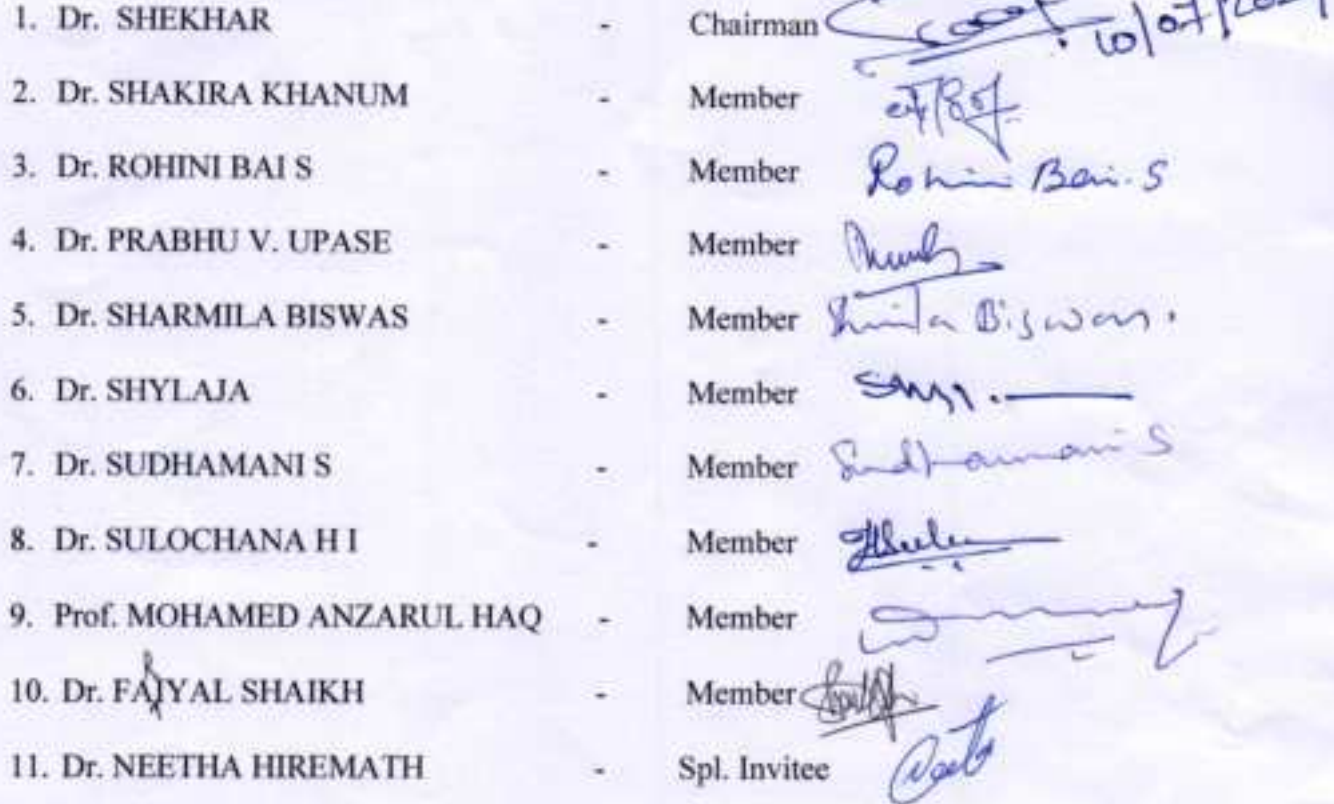 1. Dr. SHEKHAR - Chairman
2. Dr. SHAKIRA KHANUM - Member
3. Dr. ROHINI BAI S - Member Rohini Bai. S
4. Dr. PRABHU V. UPASE - Member
5. Dr. SHARMILA BISWAS - Member Biswas.
6. Dr. SHYLAJA - Member
7. Dr. SUDHAMANI S - Member Sudhamani S
8. Dr. SULOCHANA H I - Member
9. Prof. MOHAMED ANZARUL HAQ - Member
10. Dr. SHAIKH - Member
11. Dr. NEETHA HIREMATH - Spl. Invitee